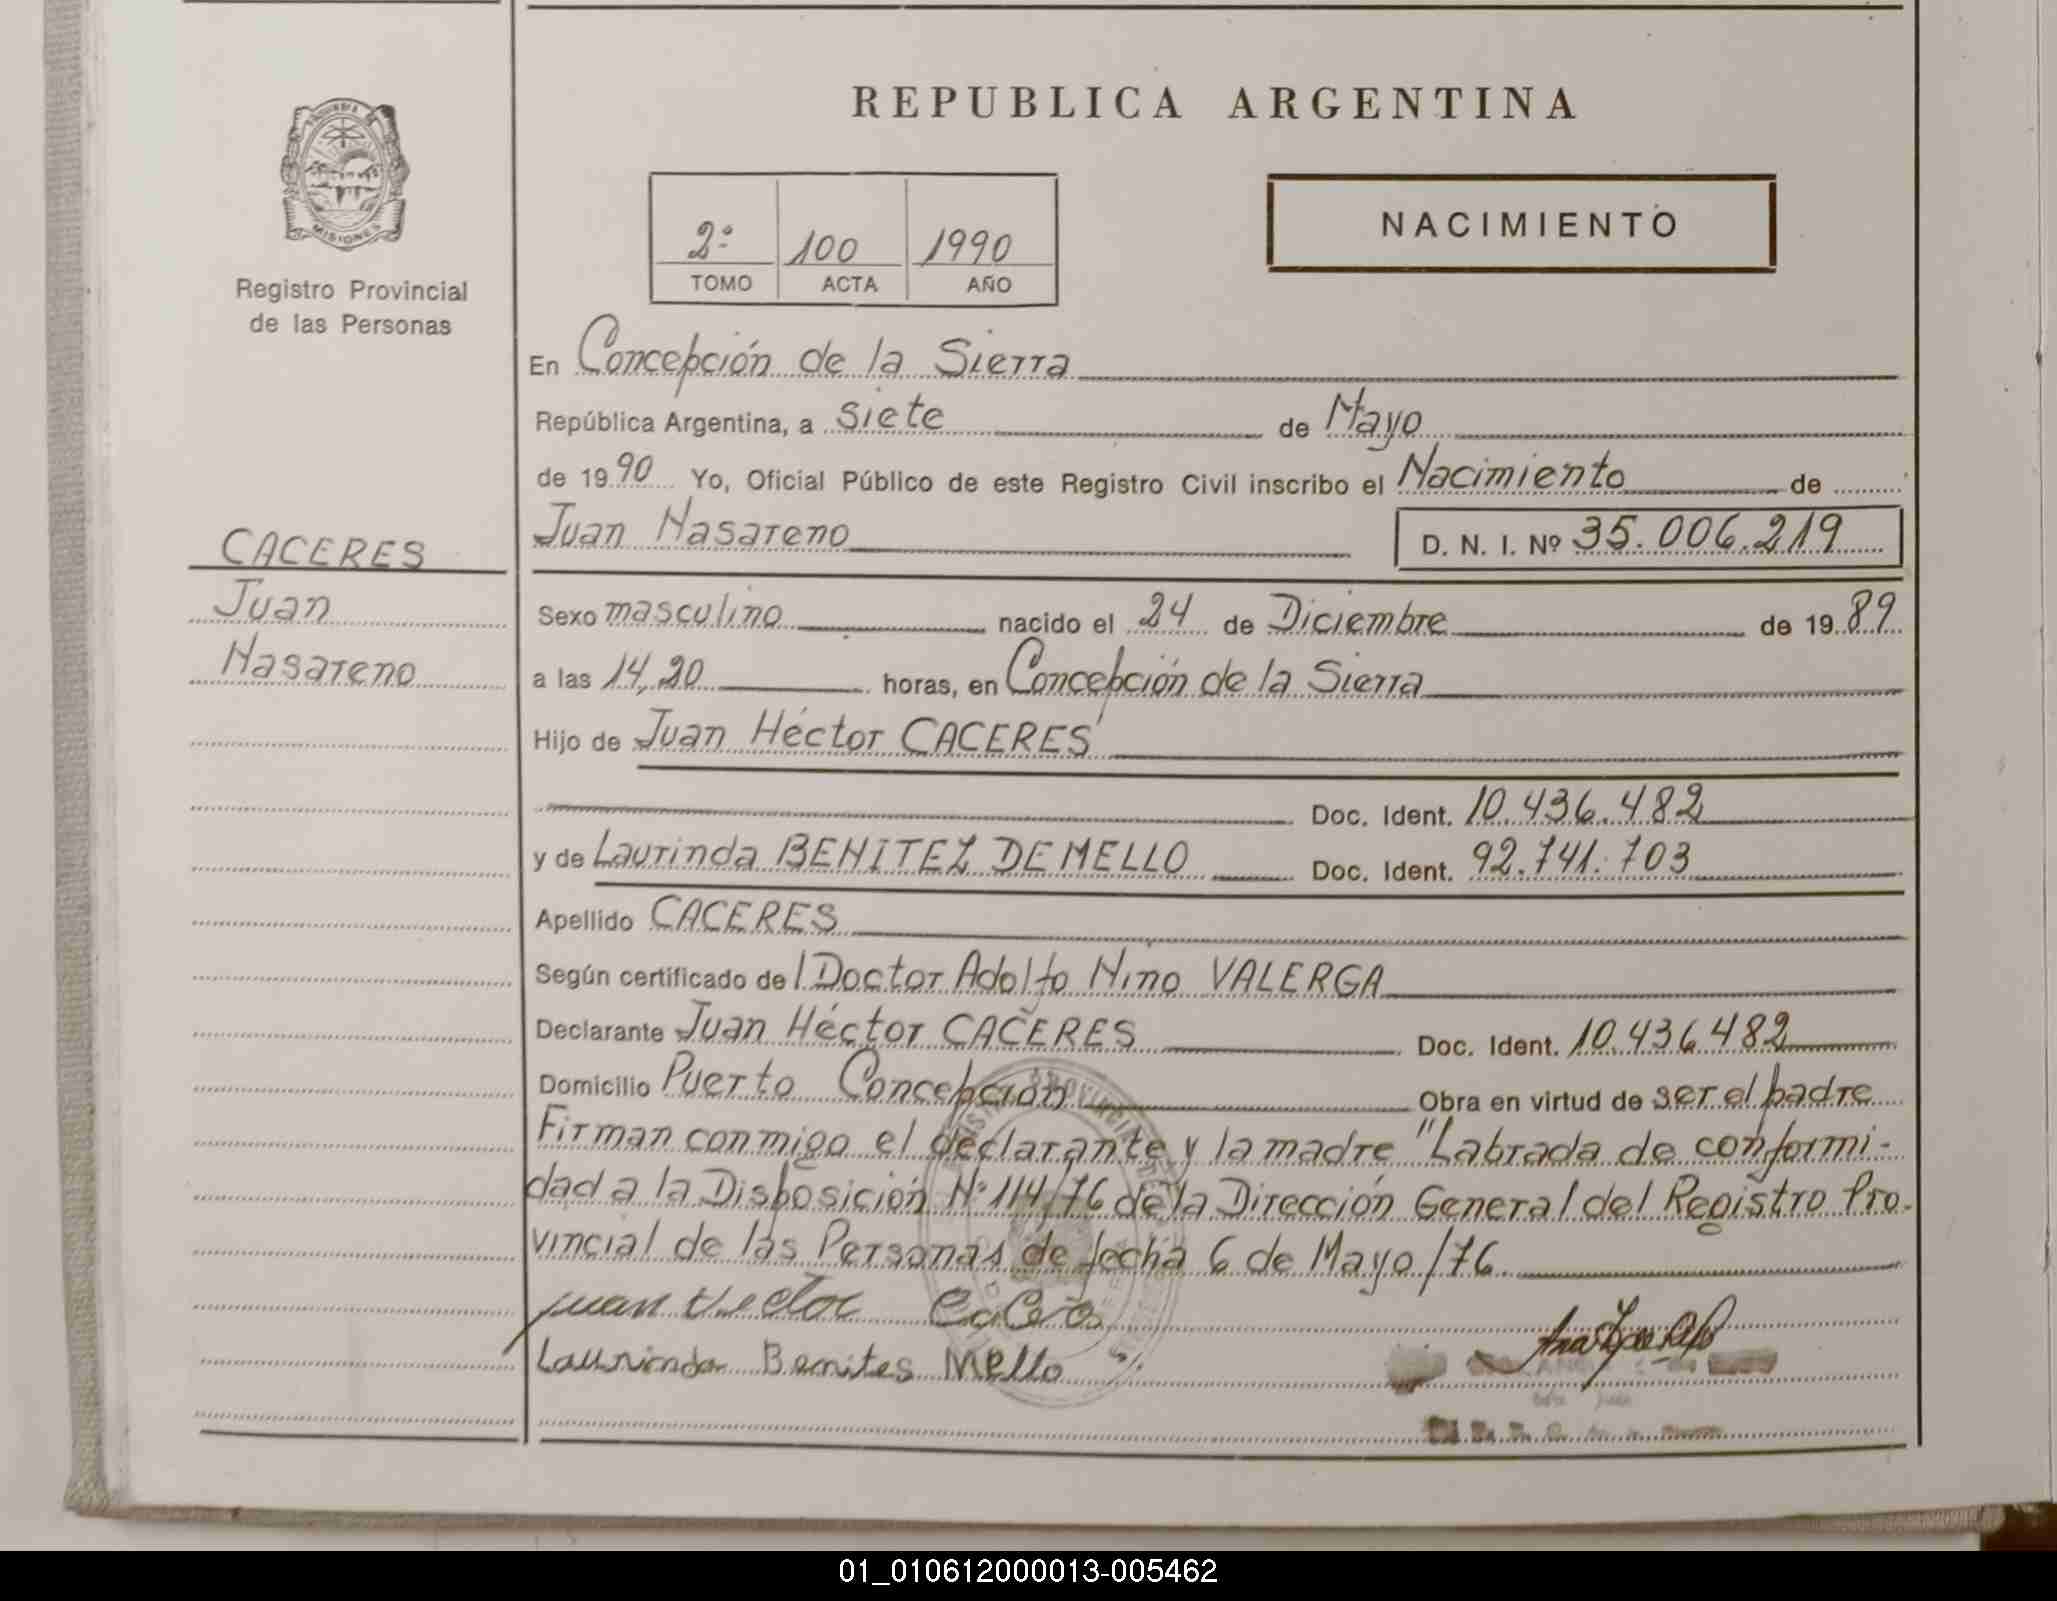 REPUBLICA ARGENTINA
PROVINCIA DE
MISIONES
Registro Provincial
de las Personas
2º 100 1990
TOMO ACTA AÑO
NACIMIENTO
En Concepción de la Sierra
República Argentina, a siete de Mayo
de 1990 Yo, Oficial Público de este Registro Civil inscribo el Nacimiento de
Juan Nasareno D. N. I. Nº 35.006.219
CACERES
Juan
Nasareno
Sexo masculino nacido el 24 de Diciembre de 1989
a las 14,20 horas, en Concepción de la Sierra
Hijo de Juan Héctor CACERES
Doc. Ident. 10.436.482
y de Laurinda BENITEZ DE MELLO Doc. Ident. 92.741.703
Apellido CACERES
Según certificado del Doctor Adolfo Nino VALERGA
Declarante Juan Héctor CACERES Doc. Ident. 10.436.482
Domicilio Puerto Concepción Obra en virtud de ser el padre
Firman conmigo el declarante y la madre "Labrada de conformi-
dad a la Disposición Nº 114/76 de la Dirección General del Registro Pro-
vincial de las Personas de fecha 6 de Mayo/76.
Juan Hector Caceres
Laurinda Benites Mello
01_010612000013-005462